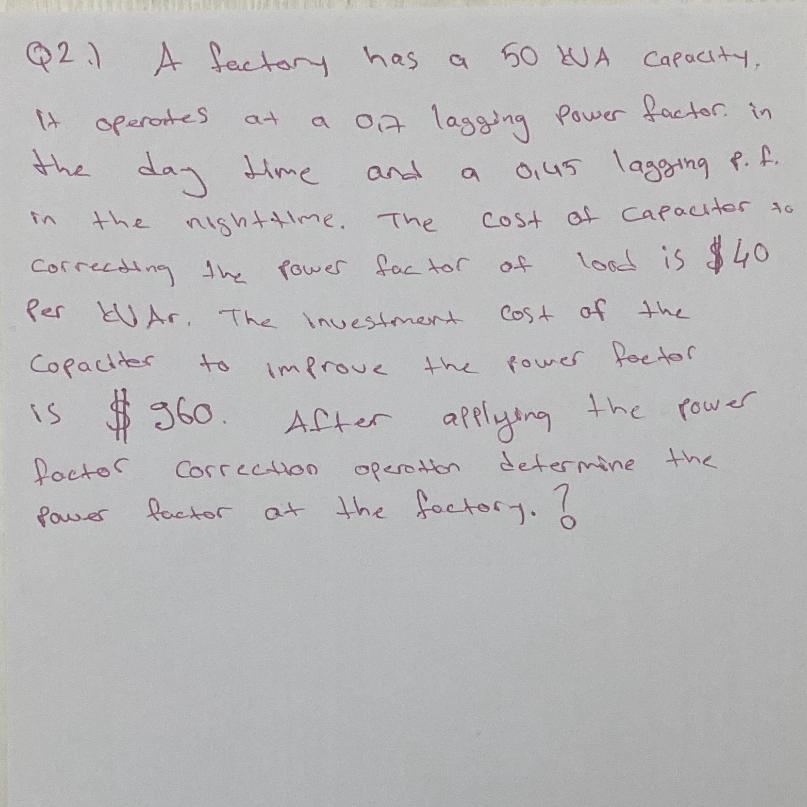 Q2.) A factory has a 50 kVA capacity.
It operates at a 0,7 lagging power factor. in
the day time and a 0,45 lagging p.f.
in the nighttime. The cost of capacitor to
correcting the power factor of load is $40
Per kVAr. The investment cost of the
capaciter to improve the power factor
is $ 960. After applying the power
factor correction operation determine the
power factor at the factory. ?